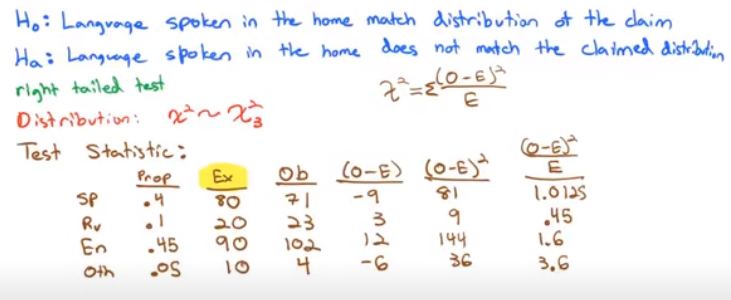 Ho: Language spoken in the home match distribution of the claim
Ha: Language spoken in the home does not match the claimed distribution
right tailed test
χ²=Σ(O-E)²/E
Distribution: χ²~χ²₃
Test Statistic:
Prop Ex Ob (O-E) (O-E)² (O-E)²/E
SP .4 80 71 -9 81 1.0125
Ru .1 20 23 3 9 .45
En .45 90 102 12 144 1.6
Oth .05 10 4 -6 36 3.6